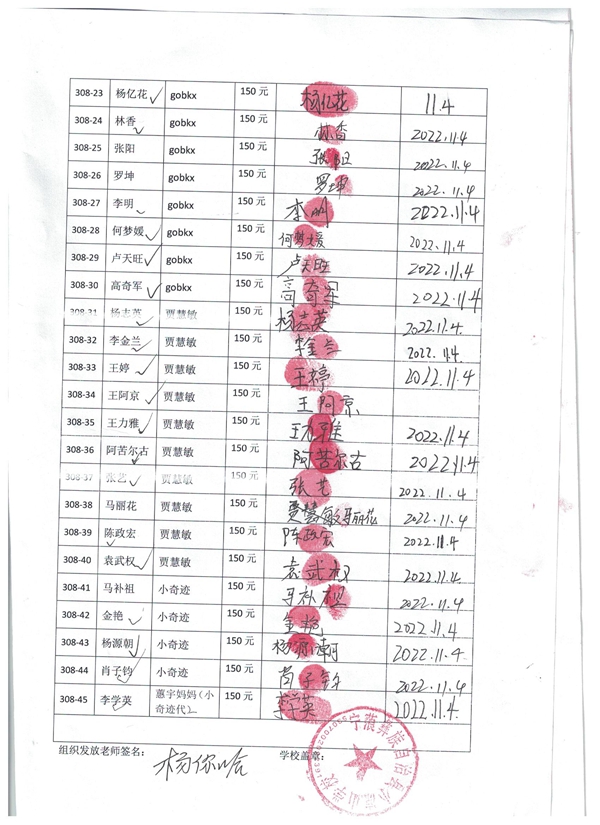 308-23 杨亿花 gobkx 150 元 杨亿花 11.4
308-24 林香 gobkx 150 元 林香 2022.11.4
308-25 张阳 gobkx 150 元 张阳 2022.11.4
308-26 罗坤 gobkx 150 元 罗坤 2022.11.4
308-27 李明 gobkx 150 元 李明 2022.11.4
308-28 何梦媛 gobkx 150 元 何梦媛 2022.11.4
308-29 卢天旺 gobkx 150 元 卢天旺 2022.11.4
308-30 高奇军 gobkx 150 元 高奇军 2022.11.4
308-31 杨志英 贾慧敏 150 元 杨志英 2022.11.4
308-32 李金兰 贾慧敏 150 元 李金兰 2022.11.4
308-33 王婷 贾慧敏 150 元 王婷 2022.11.4
308-34 王阿京 贾慧敏 150 元 王阿京
308-35 王力雅 贾慧敏 150 元 王力雅 2022.11.4
308-36 阿苦尔古 贾慧敏 150 元 阿苦尔古 2022.11.4
308-37 张艺 贾慧敏 150 元 张艺 2022.11.4
308-38 马丽花 贾慧敏 150 元 贾慧敏马丽花 2022.11.4
308-39 陈政宏 贾慧敏 150 元 陈政宏 2022.11.4
308-40 袁武权 贾慧敏 150 元 袁武权 2022.11.4
308-41 马补祖 小奇迹 150 元 马补祖 2022.11.4
308-42 金艳 小奇迹 150 元 金艳 2022.11.4
308-43 杨源朝 小奇迹 150 元 杨源朝 2022.11.4
308-44 肖子钧 小奇迹 150 元 肖子钧 2022.11.4
308-45 李学英 蕙宇妈妈（小奇迹代） 150 元 李学英 2022.11.4
组织发放老师签名： 学校盖章：
宁蒗彝族自治县小凉山学校